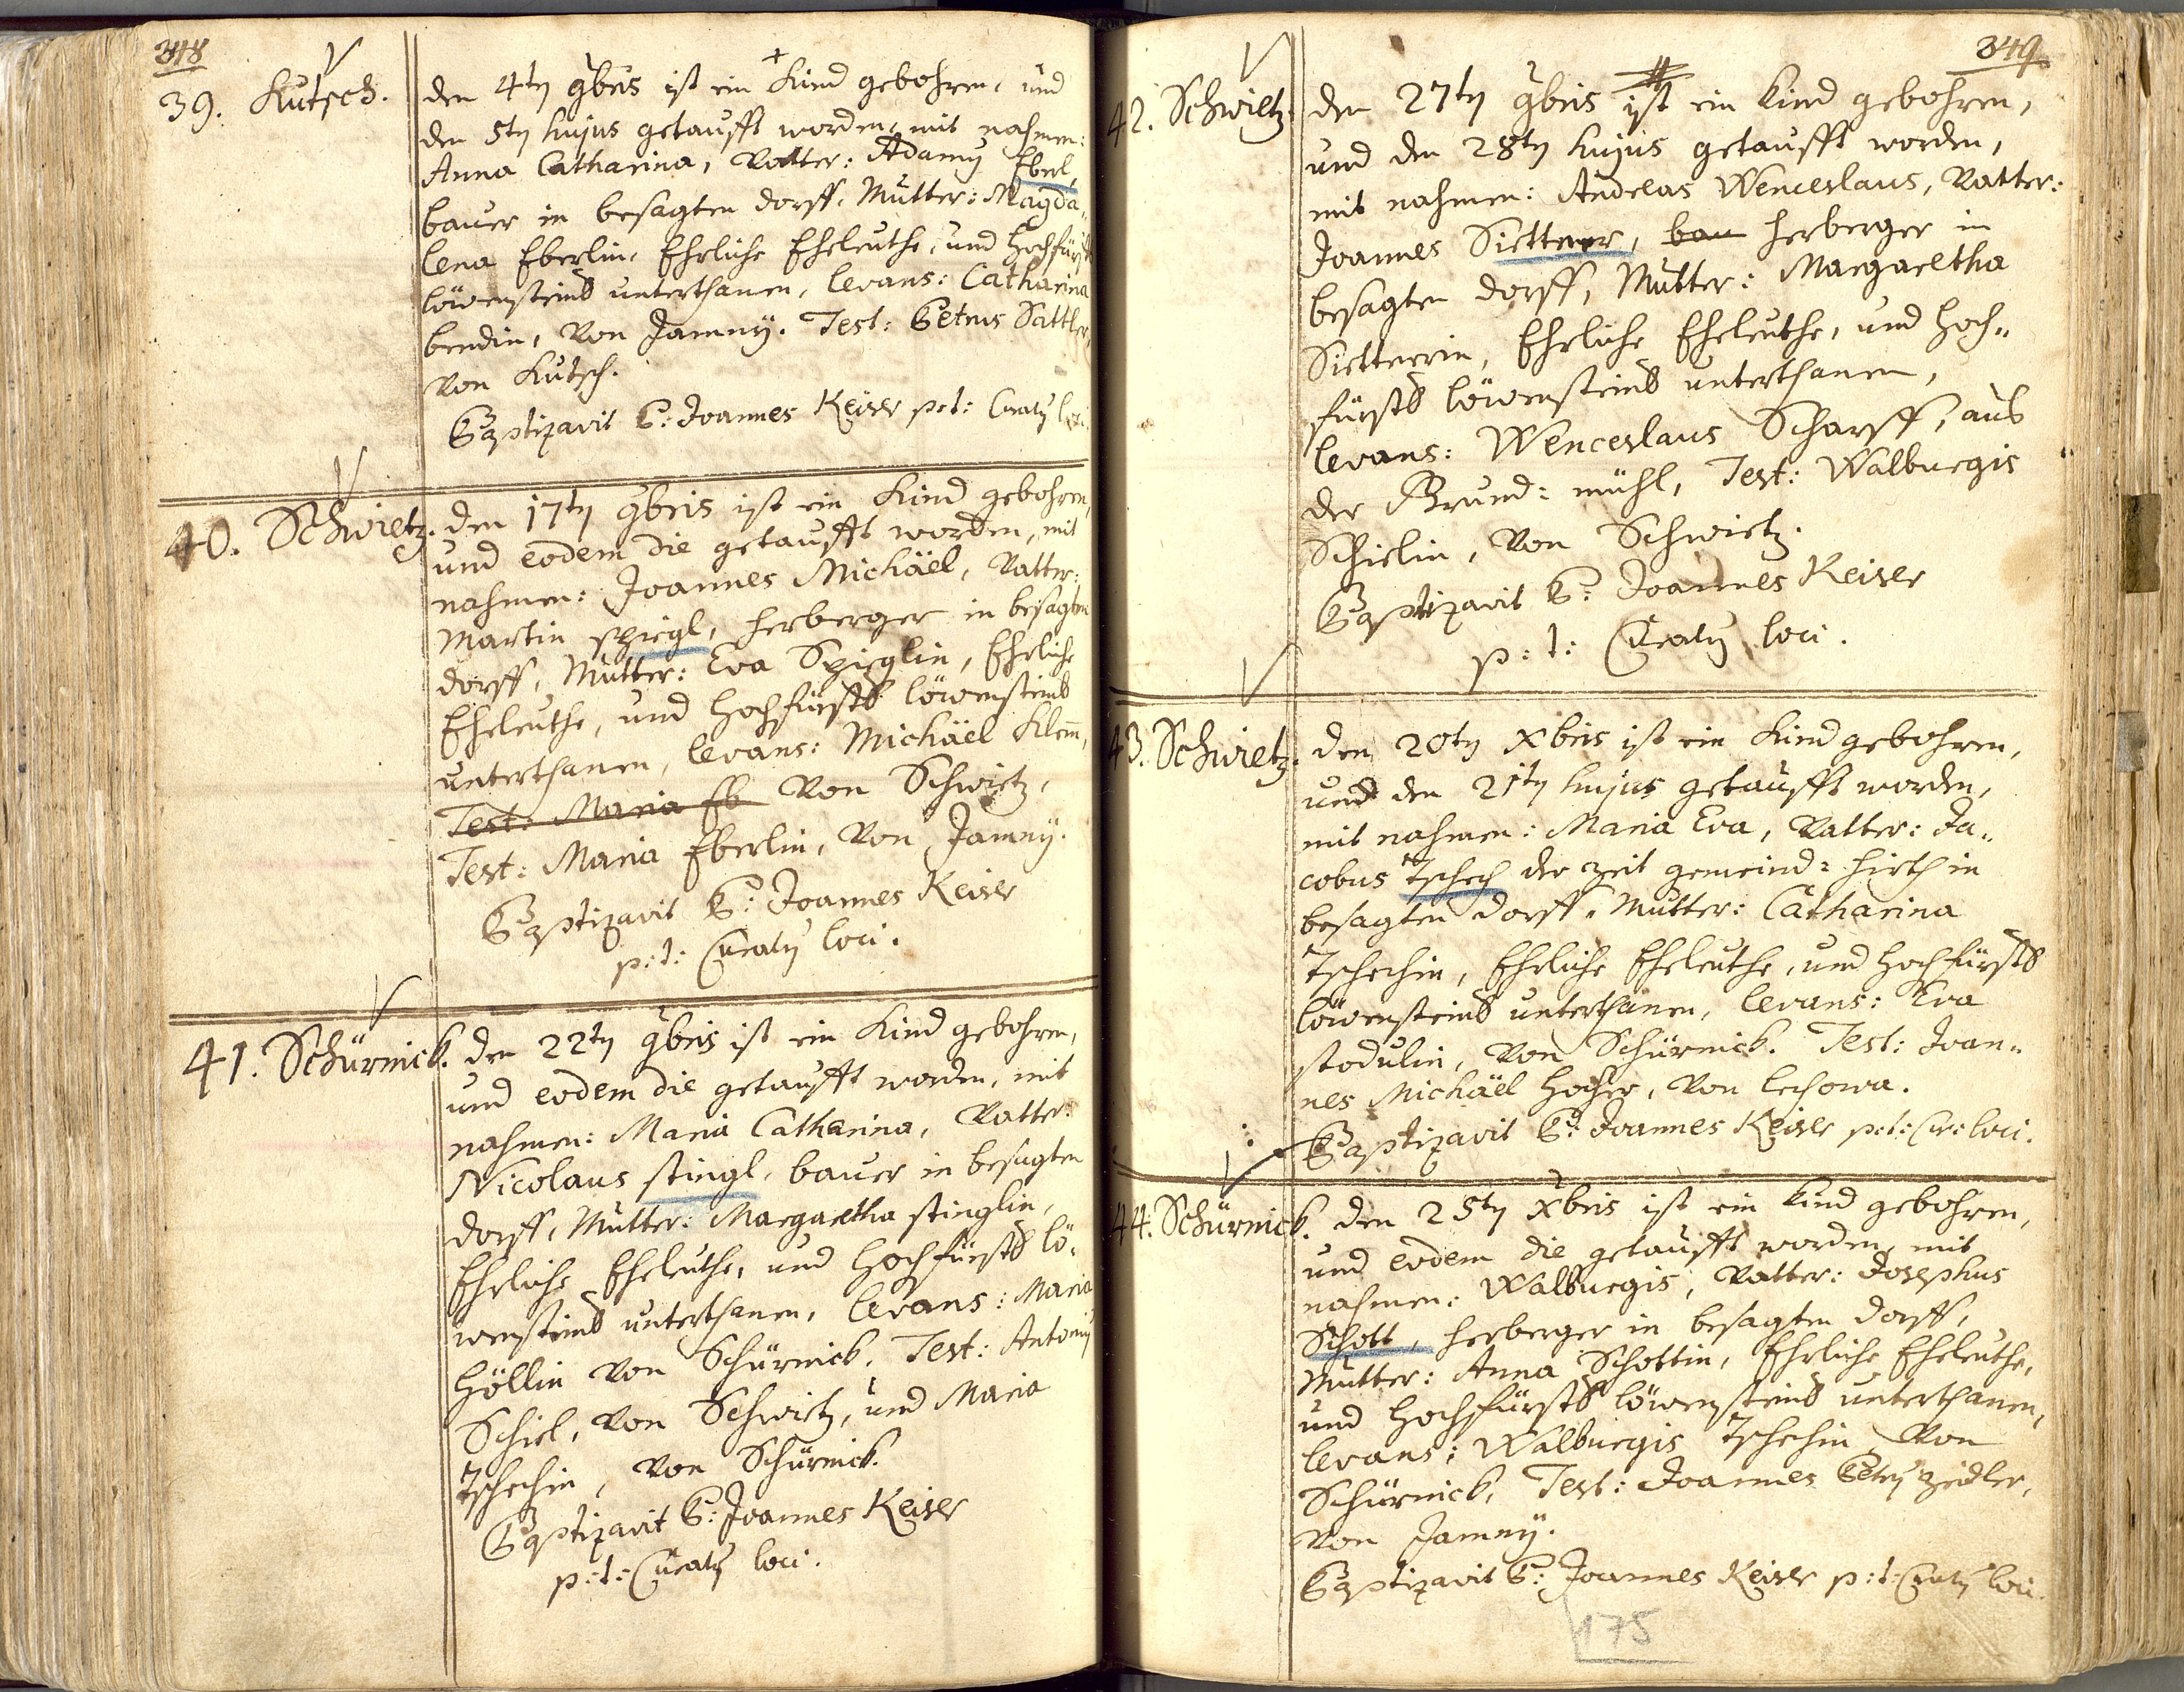 348
39. Kutsch.
den 4ty 9bris ist ein Kind gebohren, und
den 5ty hujus getaufft worden, mit nahmen:
Anna Catharina, Vatter: Adamy Ebel,
bauer in besagten dorff, Mutter: Magda„
lena Eberlin, Ehrliche Eheleuthe, und Hochfürst
löwensteins unterthanen, levans: Catharina
bendin, von Jamny. Test: Petrus Sattler,
von Kutsch.
Baptizavit P: Joannes Keiser p:t: Curaty loci.
40. Schwietz.
den 17ty 9bris ist ein Kind gebohren,
und eodem die getaufft worden, mit
nahmen: Joannes Michäel, Vatter:
Martin spiegl, herberger in besagten
dorff, Mutter: Eva Spieglin, Ehrliche
Eheleuthe, und Hochfürstl löwensteins
unterthanen, levans: Michäel Klem̄,
Test: Maria Eb von Schwietz,
Test: Maria Eberlin, von Jamny.
Baptizavit P: Joannes Keiser
p:t: Curaty loci.
41. Schürnick.
den 22ty 9bris ist ein Kind gebohren,
und eodem die getaufft worden, mit
nahmen: Maria Catharina, Vatter:
Nicolaus stingl, bauer in besagten
dorff, Mutter: Margaretha stinglin,
Ehrliche Eheleuthe, und Hochfürstl lö„
wensteins unterthanen, levans: Maria
Höllin von Schürnick, Test: Antoniy
Schiel, von Schwietz, und Maria
Tschechin, von Schürnick.
Baptizavit P: Joannes Keiser
p:t: Curaty loci.
349
42. Schwietz.
den 27ty 9bris ist ein Kind gebohren,
und den 28ty hujus getaufft worden,
mit nahmen: Andelas Wenceslaus, Vatter:
Joannes Siettner, bau herberger in
besagten dorff, Mutter: Margaretha
Siettnerin, Ehrliche Eheleuthe, und Hoch„
fürstl löwensteins unterthanen,
levans: Wenceslaus Scharff, aus
der Brund: mühl, Test: Walburgis
Schielin, von Schwietz.
Baptizavit P: Joannes Keiser
p:t: Curaty loci.
43. Schwietz.
den 20ty Xbris ist ein Kind gebohren,
und den 21ty hujus getaufft worden,
mit nahmen: Maria Eva, Vatter: Ja„
cobus Tschech der zeit gemeind: Hirth in
besagten dorff, Mutter: Catharina
Tschechin, Ehrliche Eheleuthe, und Hochfürstl
löwensteins unterthanen, levans: Eva
stodulin, von Schürnick. Test: Joan„
nes Michäel Hocher, von lechowa.
Baptizavit P: Joannes Keiser p:t: Cur: loci.
44. Schürnick.
den 25ty Xbris ist ein Kind gebohren,
und eodem die getaufft worden, mit
nahmen: Walburgis, Vatter: Josephus
Schott, herberger in besagten dorff,
Mutter: Anna Schottin, Ehrliche Eheleuthe,
und Hochfürstl löwensteins unterthanen,
levans: Walburgis Tschechin von
Schürnick, Test: Joannes Petry zeidler,
von Jamny.
Baptizavit P: Joannes Keiser p:t: Curaty loci.
175